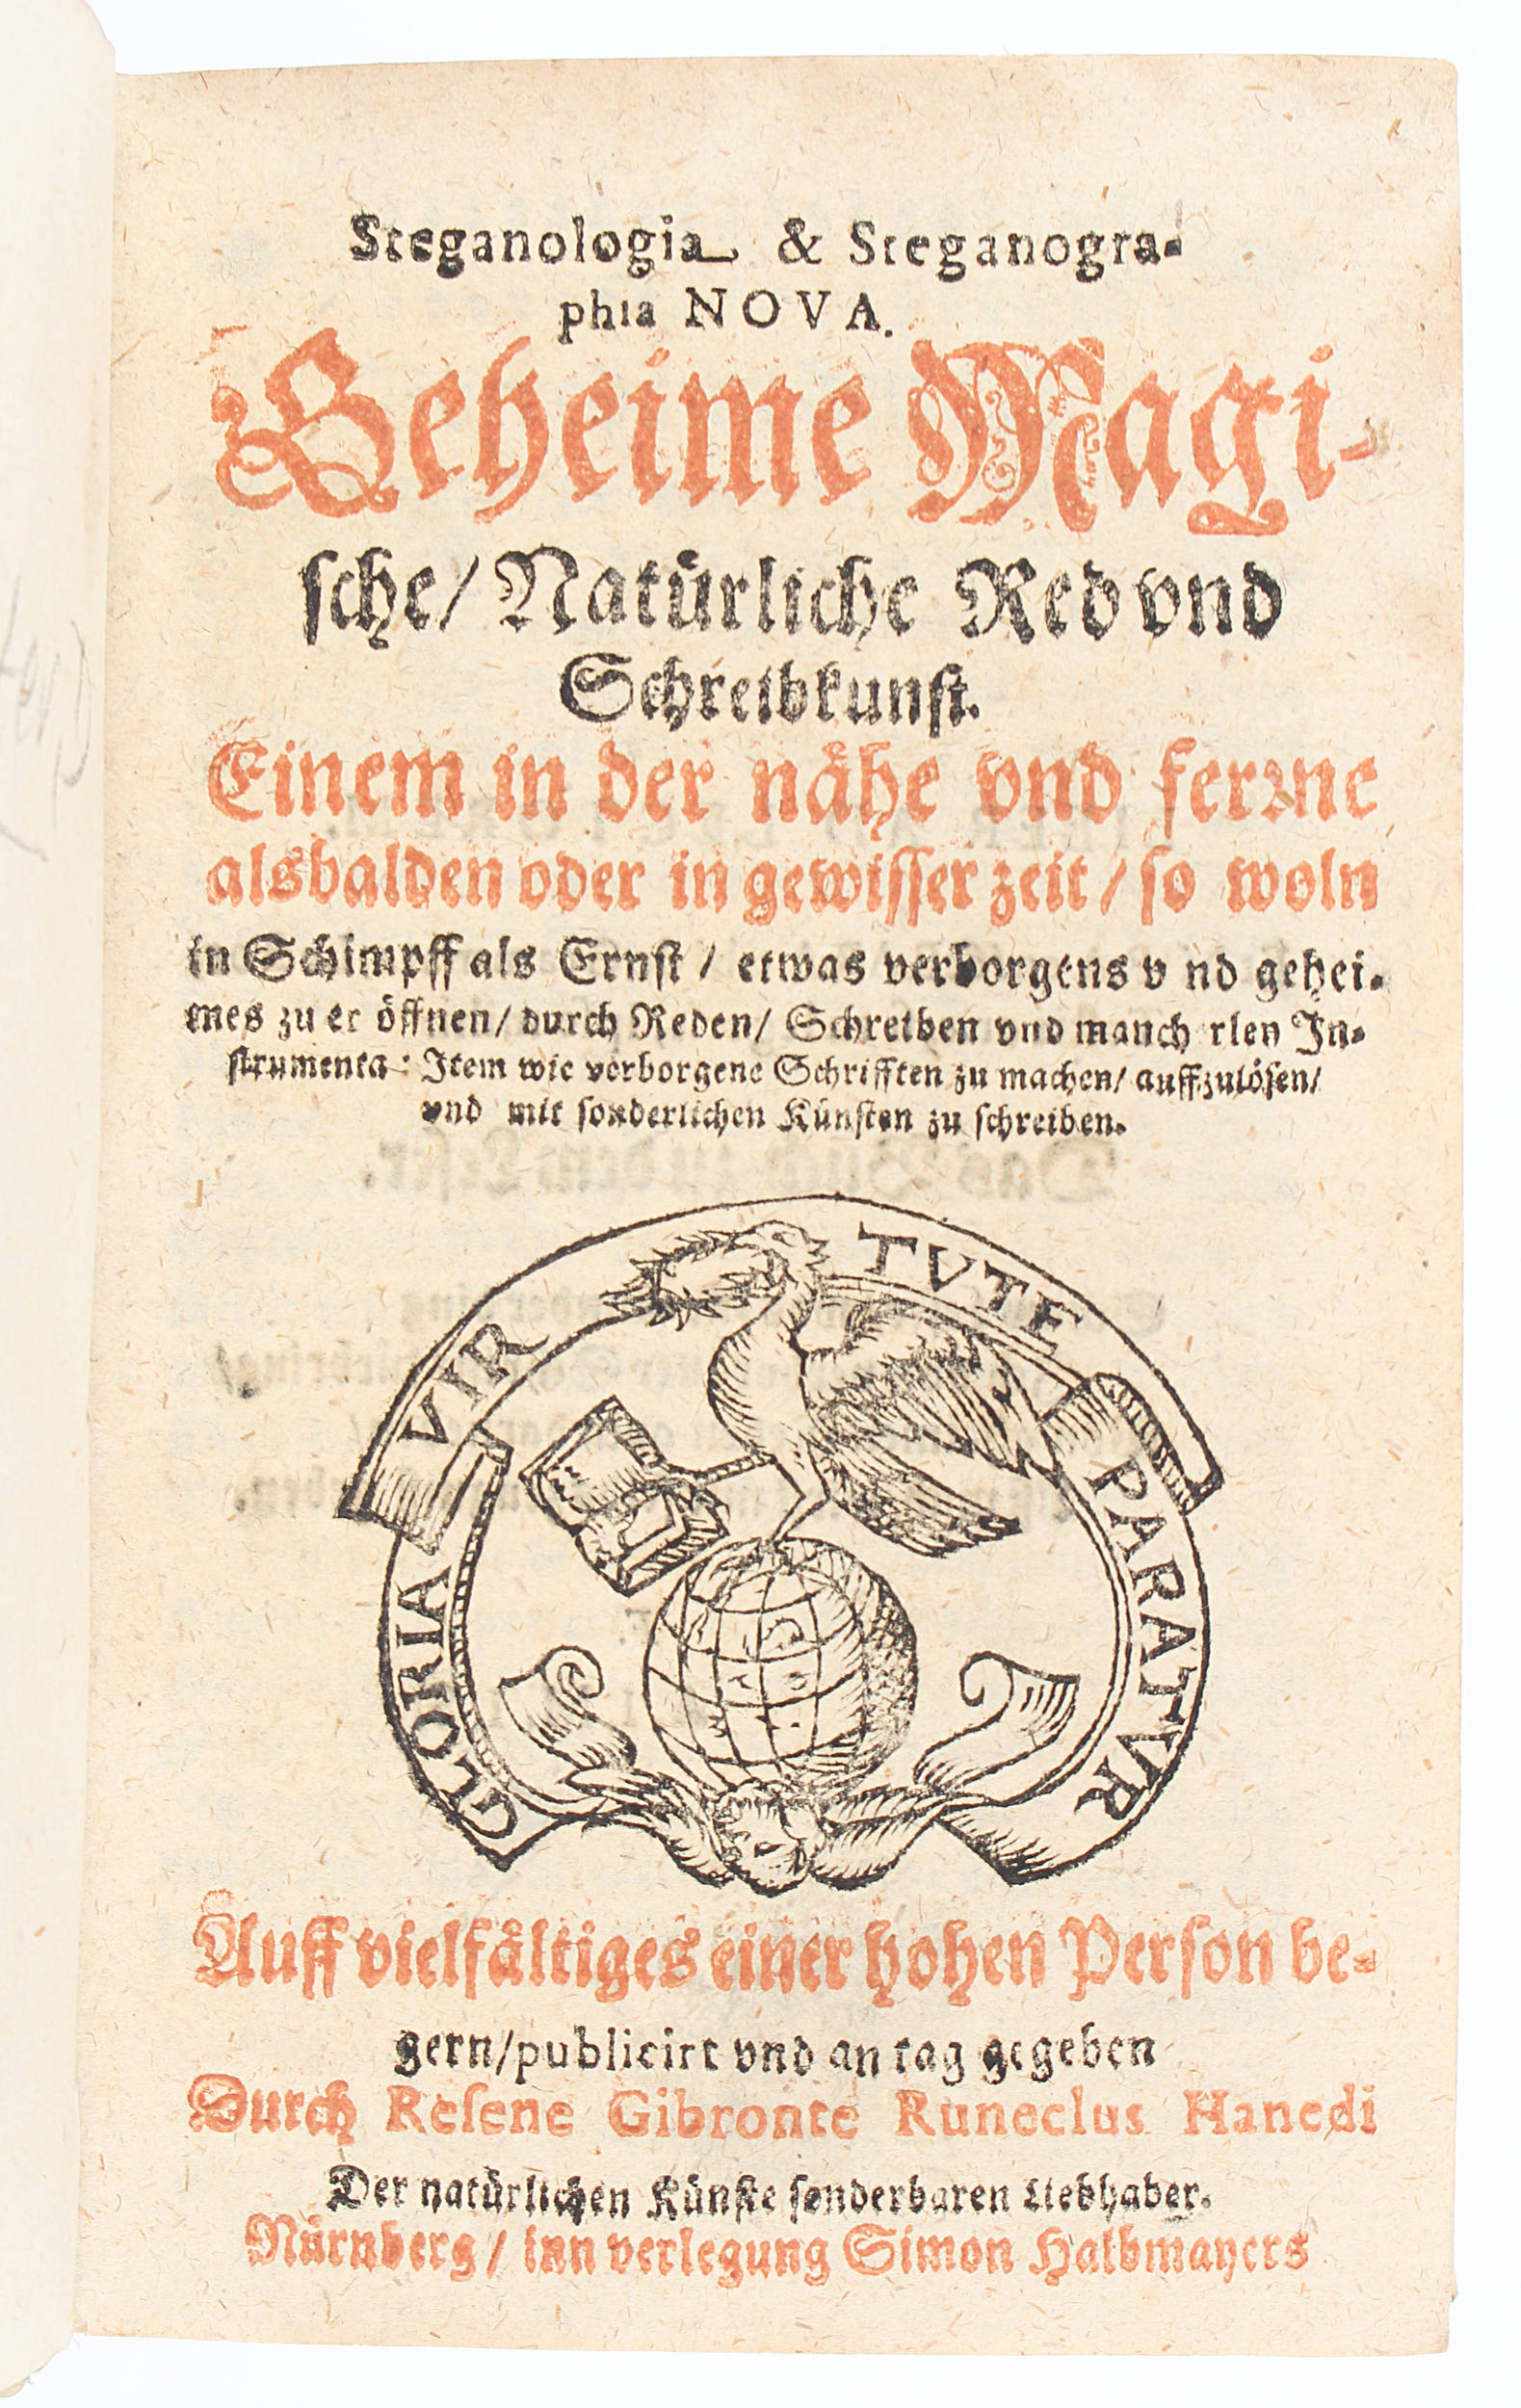 Steganologia & Steganogra-
phia NOVA.
Geheime Magi-
sche/ Natürliche Red vnd
Schreibkunst.
Einem in der nåhe vnd ferꝛne
alsbalden oder in gewisser zeit / so woln
in Schimpff als Ernst / etwas verborgens v nd gehei-
mes zu er öffnen/ durch Reden/ Schreiben vnd manch rley In-
strumenta: Item wie verborgene Schrifften zu machen/ auffzulösen/
vnd mit sonderlichen Künsten zu schreiben.
VIR TVTE PARATVR
GLORIA
Auff vielfåltiges einer hohen Person be-
gern/publicirt vnd an tag gegeben
Durch Resene Gibronte Runeclus Hanedi
Der natürlichen Künste sonderbaren Liebhaber.
Nürnberg / inn verlegung Simon Halbmayers